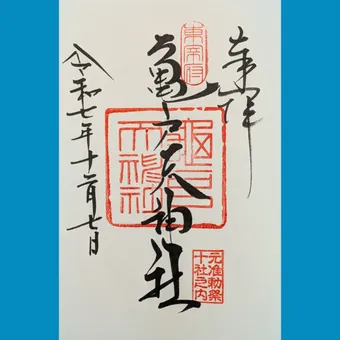 奉拝
東宰府
亀戸天神社
龜戸天神社
元准勅祭
十社之内
令和七年十二月七日